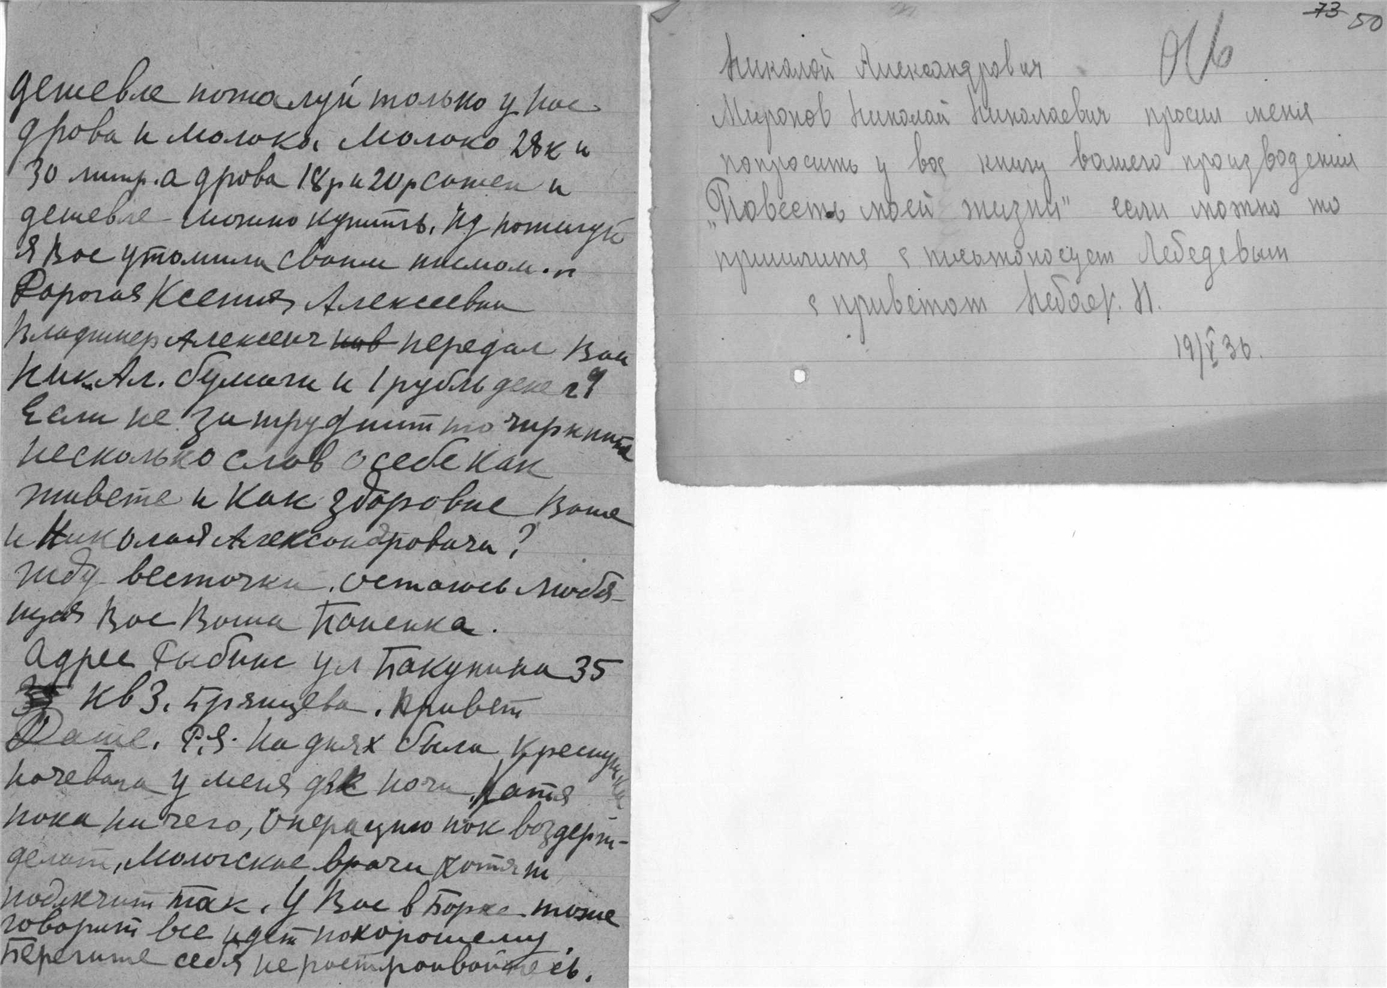 дешевле пожалуй только у нас
дрова и молоко. Молоко 28к и
30 литр. а дрова 18р и 20р сажен и
дешевле можно купить.
я Вас утомила своим писмом.
Дорогая Ксения Алексеевна
Владимер Алексеич передал Вам
Ник. Ал. бумаги и 1 рубль денег?
Если не затруднит то чиркнита
несколько слов о себе как
живете и как здоровие Ваше
и Николая Александровича?
жду весточки. остаюсь любя-
щая Вас Ваша
Адрес Рыбинс ул Бакунина 35
кв 3. Брянцева. привет
Даше. Р.Я. На днях была
ночевала у меня две ночи. Катя
пока ничего, Операцию пок воздерж-
делат, Мологские врачи хотят
подлечит так. У Вас в Борке тоже
говорит все идет похорошему.
Берегите себя не растраивайтесь.
73 50
Николай Александрович
Миронов Николай Николаевич просил меня
попросить у вас книгу вашего произведения
„Повесть моей жизни" если можно то
пришлите с письмоносцем Лебедевым
с приветом Н.
19/V 36.